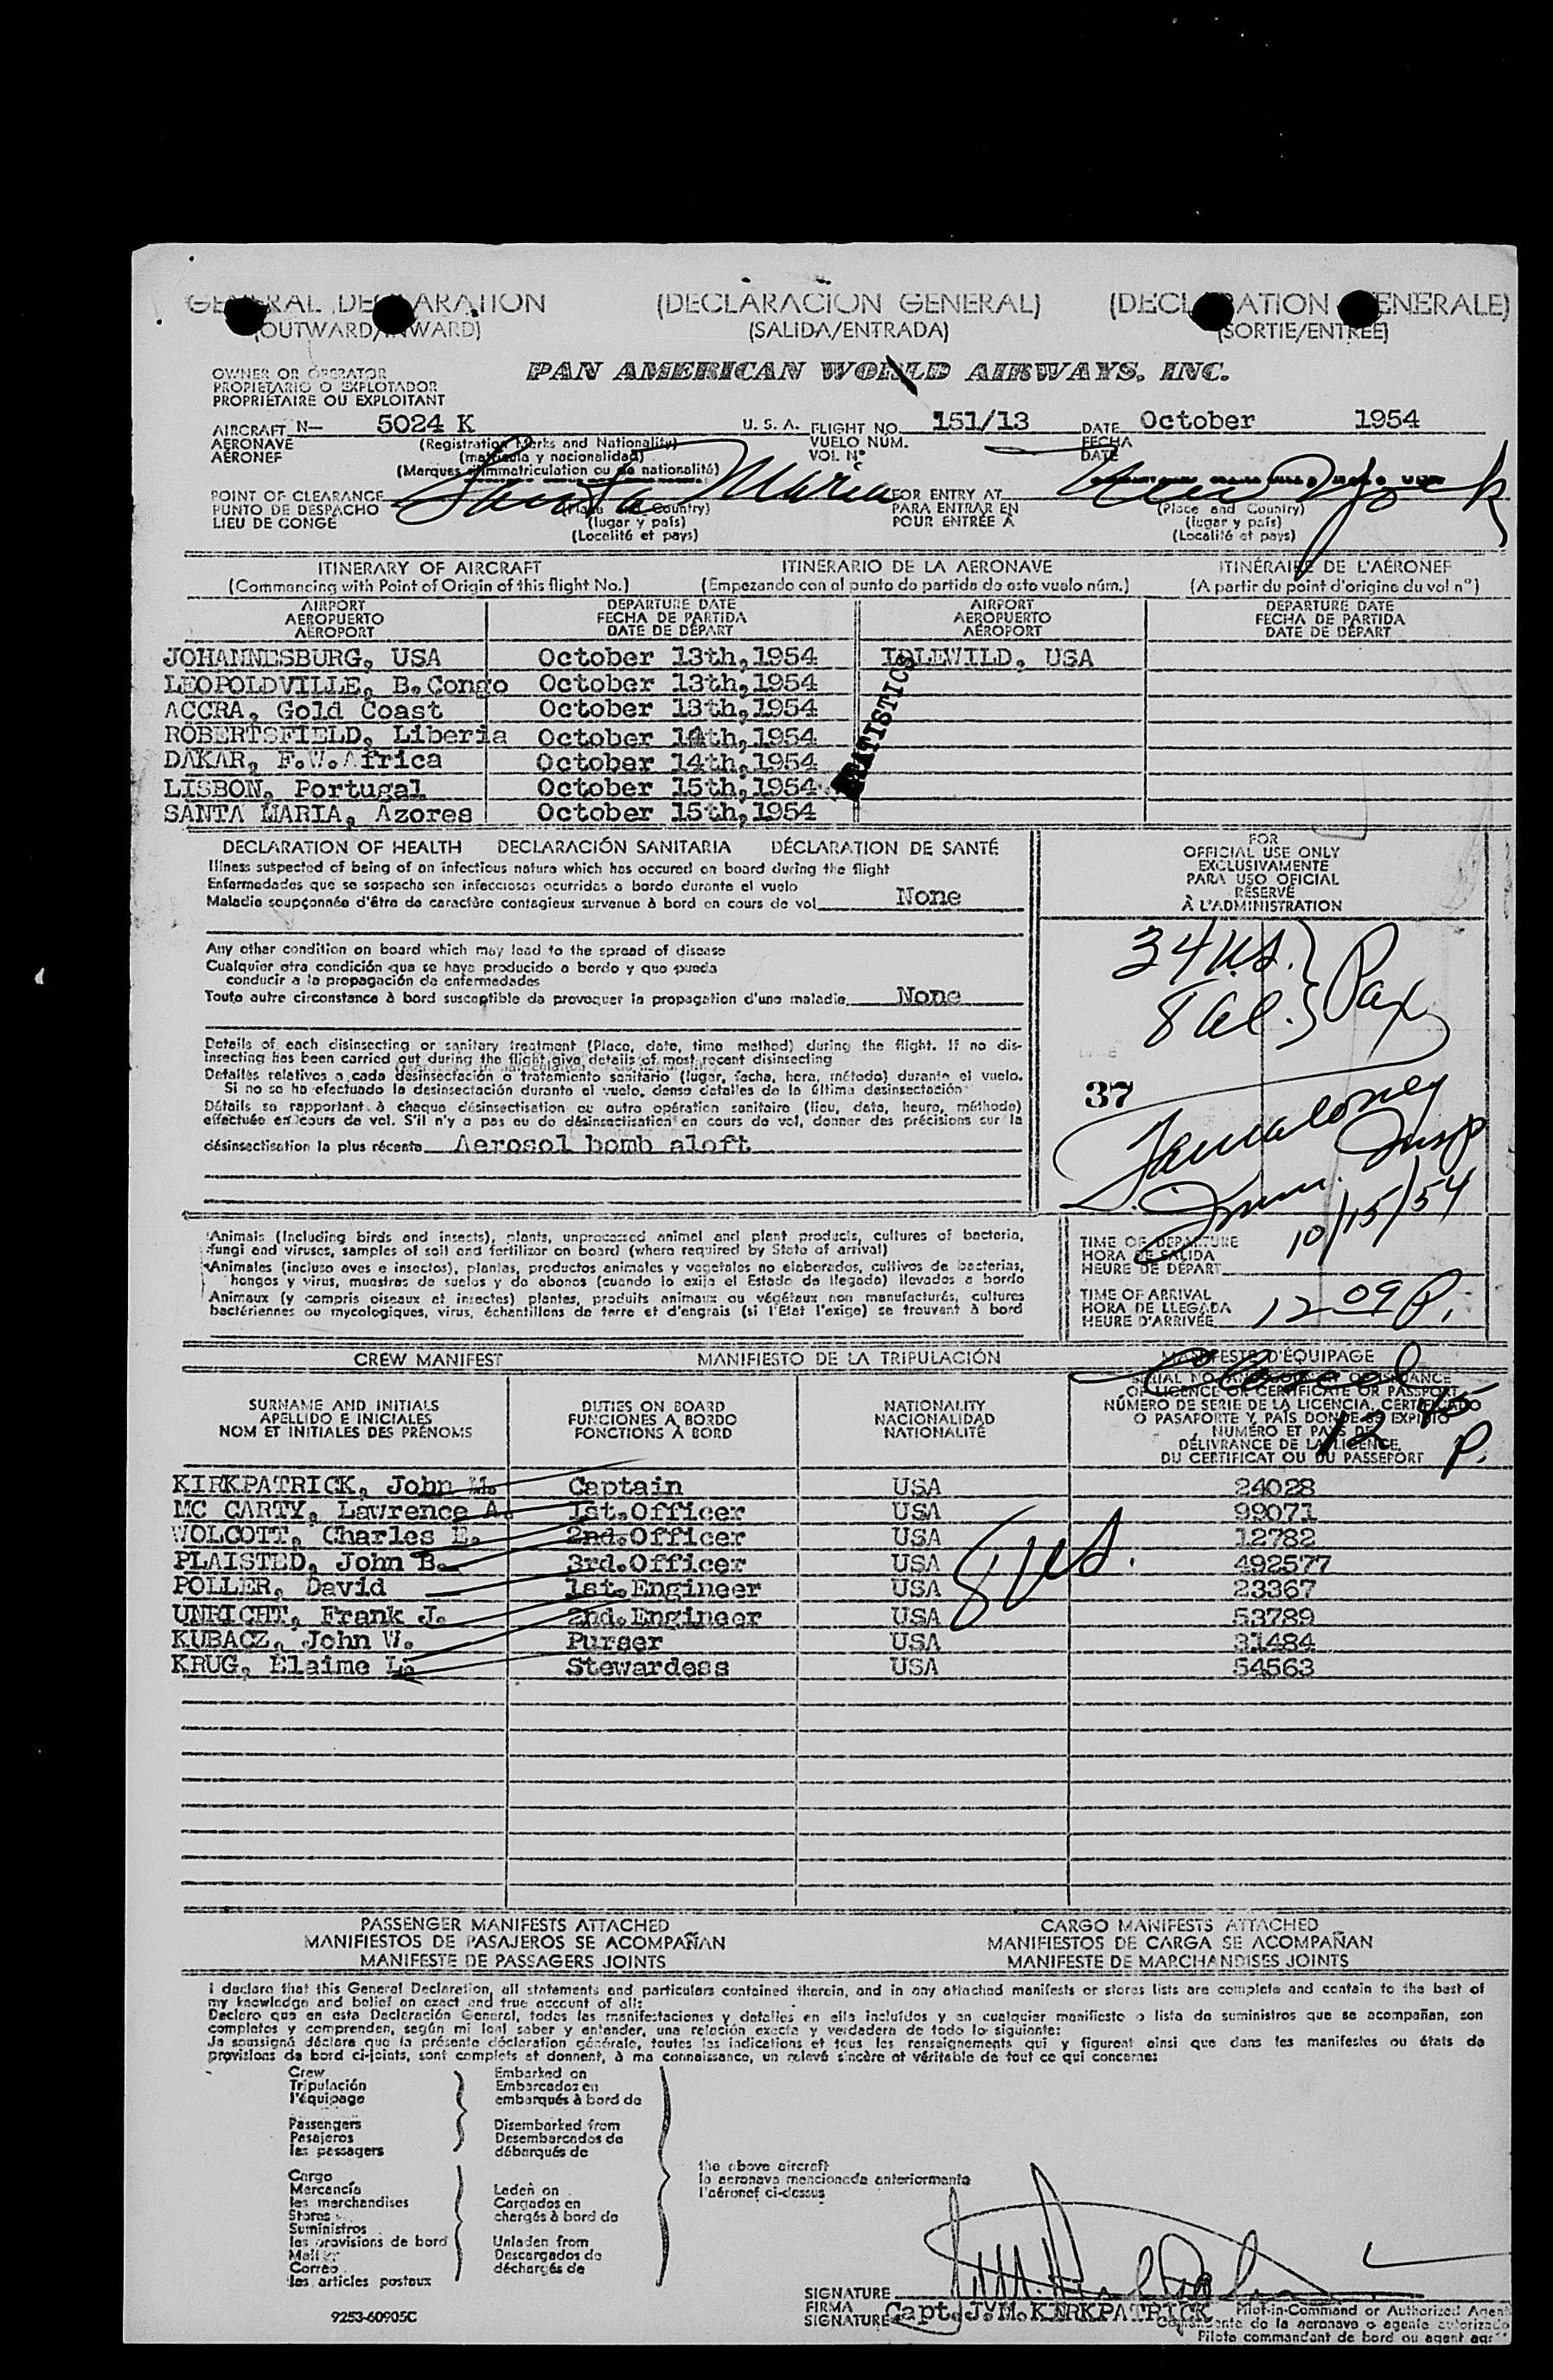 GENERAL DECLARATION (DECLARACIÓN GENERAL) (DECLARATION GENERALE)
(OUTWARD/INWARD) (SALIDA/ENTRADA) (SORTIE/ENTRÉE)
OWNER OR OPERATOR
PROPIETARIO O EXPLOTADOR
PROPRIÉTAIRE OU EXPLOITANT
PAN AMERICAN WORLD AIRWAYS, INC.
AIRCRAFT N- 5024 K U. S. A. FLIGHT NO. 151/13 DATE October 1954
AERONAVE (Registration Marks and Nationality) VUELO NÚM. FECHA
AÉRONEF (matrícula y nacionalidad) VOL Nº DATE
(Marques d'immatriculation ou de nationalité)
POINT OF CLEARANCE Santa Maria FOR ENTRY AT New York
PUNTO DE DESPACHO (Place and Country) PARA ENTRAR EN (Place and Country)
LIEU DE CONGÉ (lugar y país) POUR ENTRÉE À (lugar y país)
(Localité et pays) (Localité et pays)
ITINERARY OF AIRCRAFT ITINERARIO DE LA AERONAVE ITINÉRAIRE DE L'AÉRONEF
(Commencing with Point of Origin of this flight No.) (Empezando con el punto de partida de este vuelo núm.) (A partir du point d'origine du vol nº)
AIRPORT DEPARTURE DATE AIRPORT DEPARTURE DATE
AEROPUERTO FECHA DE PARTIDA AEROPUERTO FECHA DE PARTIDA
AÉROPORT DATE DE DÉPART AÉROPORT DATE DE DÉPART
JOHANNESBURG, USA October 13th,1954 IDLEWILD, USA
LEOPOLDVILLE, B.Congo October 13th,1954
ACCRA, Gold Coast October 13th,1954
ROBERTSFIELD, Liberia October 14th,1954
DAKAR, F.W.Africa October 14th,1954
LISBON, Portugal October 15th,1954
SANTA MARIA, Azores October 15th,1954
STATISTICS
DECLARATION OF HEALTH DECLARACIÓN SANITARIA DÉCLARATION DE SANTÉ
Illness suspected of being of an infectious nature which has occured on board during the flight
Enfermedades que se sospecha son infecciosas ocurridas a bordo durante el vuelo
Maladie soupçonnée d'être de caractère contagieux survenue à bord en cours de vol None
Any other condition on board which may lead to the spread of disease
Cualquier otra condición que se haya producido a bordo y que pueda
conducir a la propagación de enfermedades
Toute autre circonstance à bord susceptible de provoquer la propagation d'une maladie None
Details of each disinsecting or sanitary treatment (Place, date, time method) during the flight. If no dis-
insecting has been carried out during the flight give details of most recent disinsecting
Detalles relativos a cada desinsectación o tratamiento sanitario (lugar, fecha, hora, método) durante el vuelo.
Si no se ha efectuado la desinsectación durante el vuelo, dense detalles de la última desinsectación
Détails se rapportant à chaque désinsectisation ou autre opération sanitaire (lieu, date, heure, méthode)
effectuée en cours de vol. S'il n'y a pas eu de désinsectisation en cours de vol, donner des précisions sur la
désinsectisation la plus récente Aerosol bomb aloft
FOR
OFFICIAL USE ONLY
EXCLUSIVAMENTE
PARA USO OFICIAL
RÉSERVÉ
À L'ADMINISTRATION
34 U.S. } Pax
8 al. }
37
Imm. Insp
10/15/54
Animals (Including birds and insects), plants, unprocessed animal and plant products, cultures of bacteria,
fungi and viruses, samples of soil and fertilizer on board (where required by State of arrival)
Animales (incluso aves e insectos), plantas, productos animales y vegetales no elaborados, cultivos de bacterias,
hongos y virus, muestras de suelos y de abonos (cuando lo exija el Estado de llegada) llevados a bordo
Animaux (y compris oiseaux et insectes) plantes, produits animaux ou végétaux non manufacturés, cultures
bactériennes ou mycologiques, virus, échantillons de terre et d'engrais (si l'Etat l'exige) se trouvant à bord
TIME OF DEPARTURE
HORA DE SALIDA
HEURE DE DÉPART
TIME OF ARRIVAL
HORA DE LLEGADA
HEURE D'ARRIVÉE 12 09 P.
CREW MANIFEST MANIFIESTO DE LA TRIPULACIÓN MANIFESTE D'ÉQUIPAGE
SURNAME AND INITIALS
APELLIDO E INICIALES
NOM ET INITIALES DES PRÉNOMS
DUTIES ON BOARD
FUNCIONES A BORDO
FONCTIONS À BORD
NATIONALITY
NACIONALIDAD
NATIONALITÉ
SERIAL NO. AND COUNTRY OF ISSUANCE
OF LICENCE OR CERTIFICATE OR PASSPORT
NÚMERO DE SERIE DE LA LICENCIA, CERTIFICADO
O PASAPORTE Y PAÍS DONDE SE EXPIDIÓ
NUMÉRO ET PAYS DE
DÉLIVRANCE DE LA LICENCE,
DU CERTIFICAT OU DU PASSEPORT
12 45 P.
KIRKPATRICK, John M. Captain USA 24028
MC CARTY, Lawrence A. 1st.Officer USA 99071
WOLCOTT, Charles E. 2nd.Officer USA 12782
PLAISTED, John B. 3rd.Officer USA 492577
POLLER, David 1st.Engineer USA 23367
UNRICHT, Frank J. 2nd.Engineer USA 53789
KUBACZ, John W. Purser USA 31484
KRUG, Elaime L. Stewardess USA 54563
8 US.
PASSENGER MANIFESTS ATTACHED CARGO MANIFESTS ATTACHED
MANIFIESTOS DE PASAJEROS SE ACOMPAÑAN MANIFIESTOS DE CARGA SE ACOMPAÑAN
MANIFESTE DE PASSAGERS JOINTS MANIFESTE DE MARCHANDISES JOINTS
I declare that this General Declaration, all statements and particulars contained therein, and in any attached manifests or stores lists are complete and contain to the best of
my knowledge and belief an exact and true account of all:
Declaro que en esta Declaración General, todas las manifestaciones y detalles en ella incluídos y en cualquier manifiesto o lista de suministros que se acompañan, son
completos y comprenden, según mi leal saber y entender, una relación exacta y verdadera de todo lo siguiente:
Je soussigné déclare que la présente déclaration générale, toutes les indications et tous les renseignements qui y figurent ainsi que dans les manifestes ou états de
provisions de bord ci-joints, sont complets et donnent, à ma connaissance, un relevé sincère et véritable de tout ce qui concerne:
Crew Embarked on
Tripulación Embarcados en
l'équipage embarqués à bord de
Passengers Disembarked from
Pasajeros Desembarcados de
les passagers débarqués de
the above aircraft
la aeronave mencionada anteriormente
l'aéronef ci-dessus
Cargo
Mercancía Laden on
les merchandises Cargados en
Stores chargés à bord de
Suministros
les provisions de bord Unladen from
Mail Descargados de
Correo déchargés de
les articles postaux
SIGNATURE
FIRMA
SIGNATURE Capt.J.M.KIRKPATRICK Pilot-in-Command or Authorized Agent
Comandante de la aeronave o agente autorizado
Pilote commandant de bord ou agent
9253-60905C